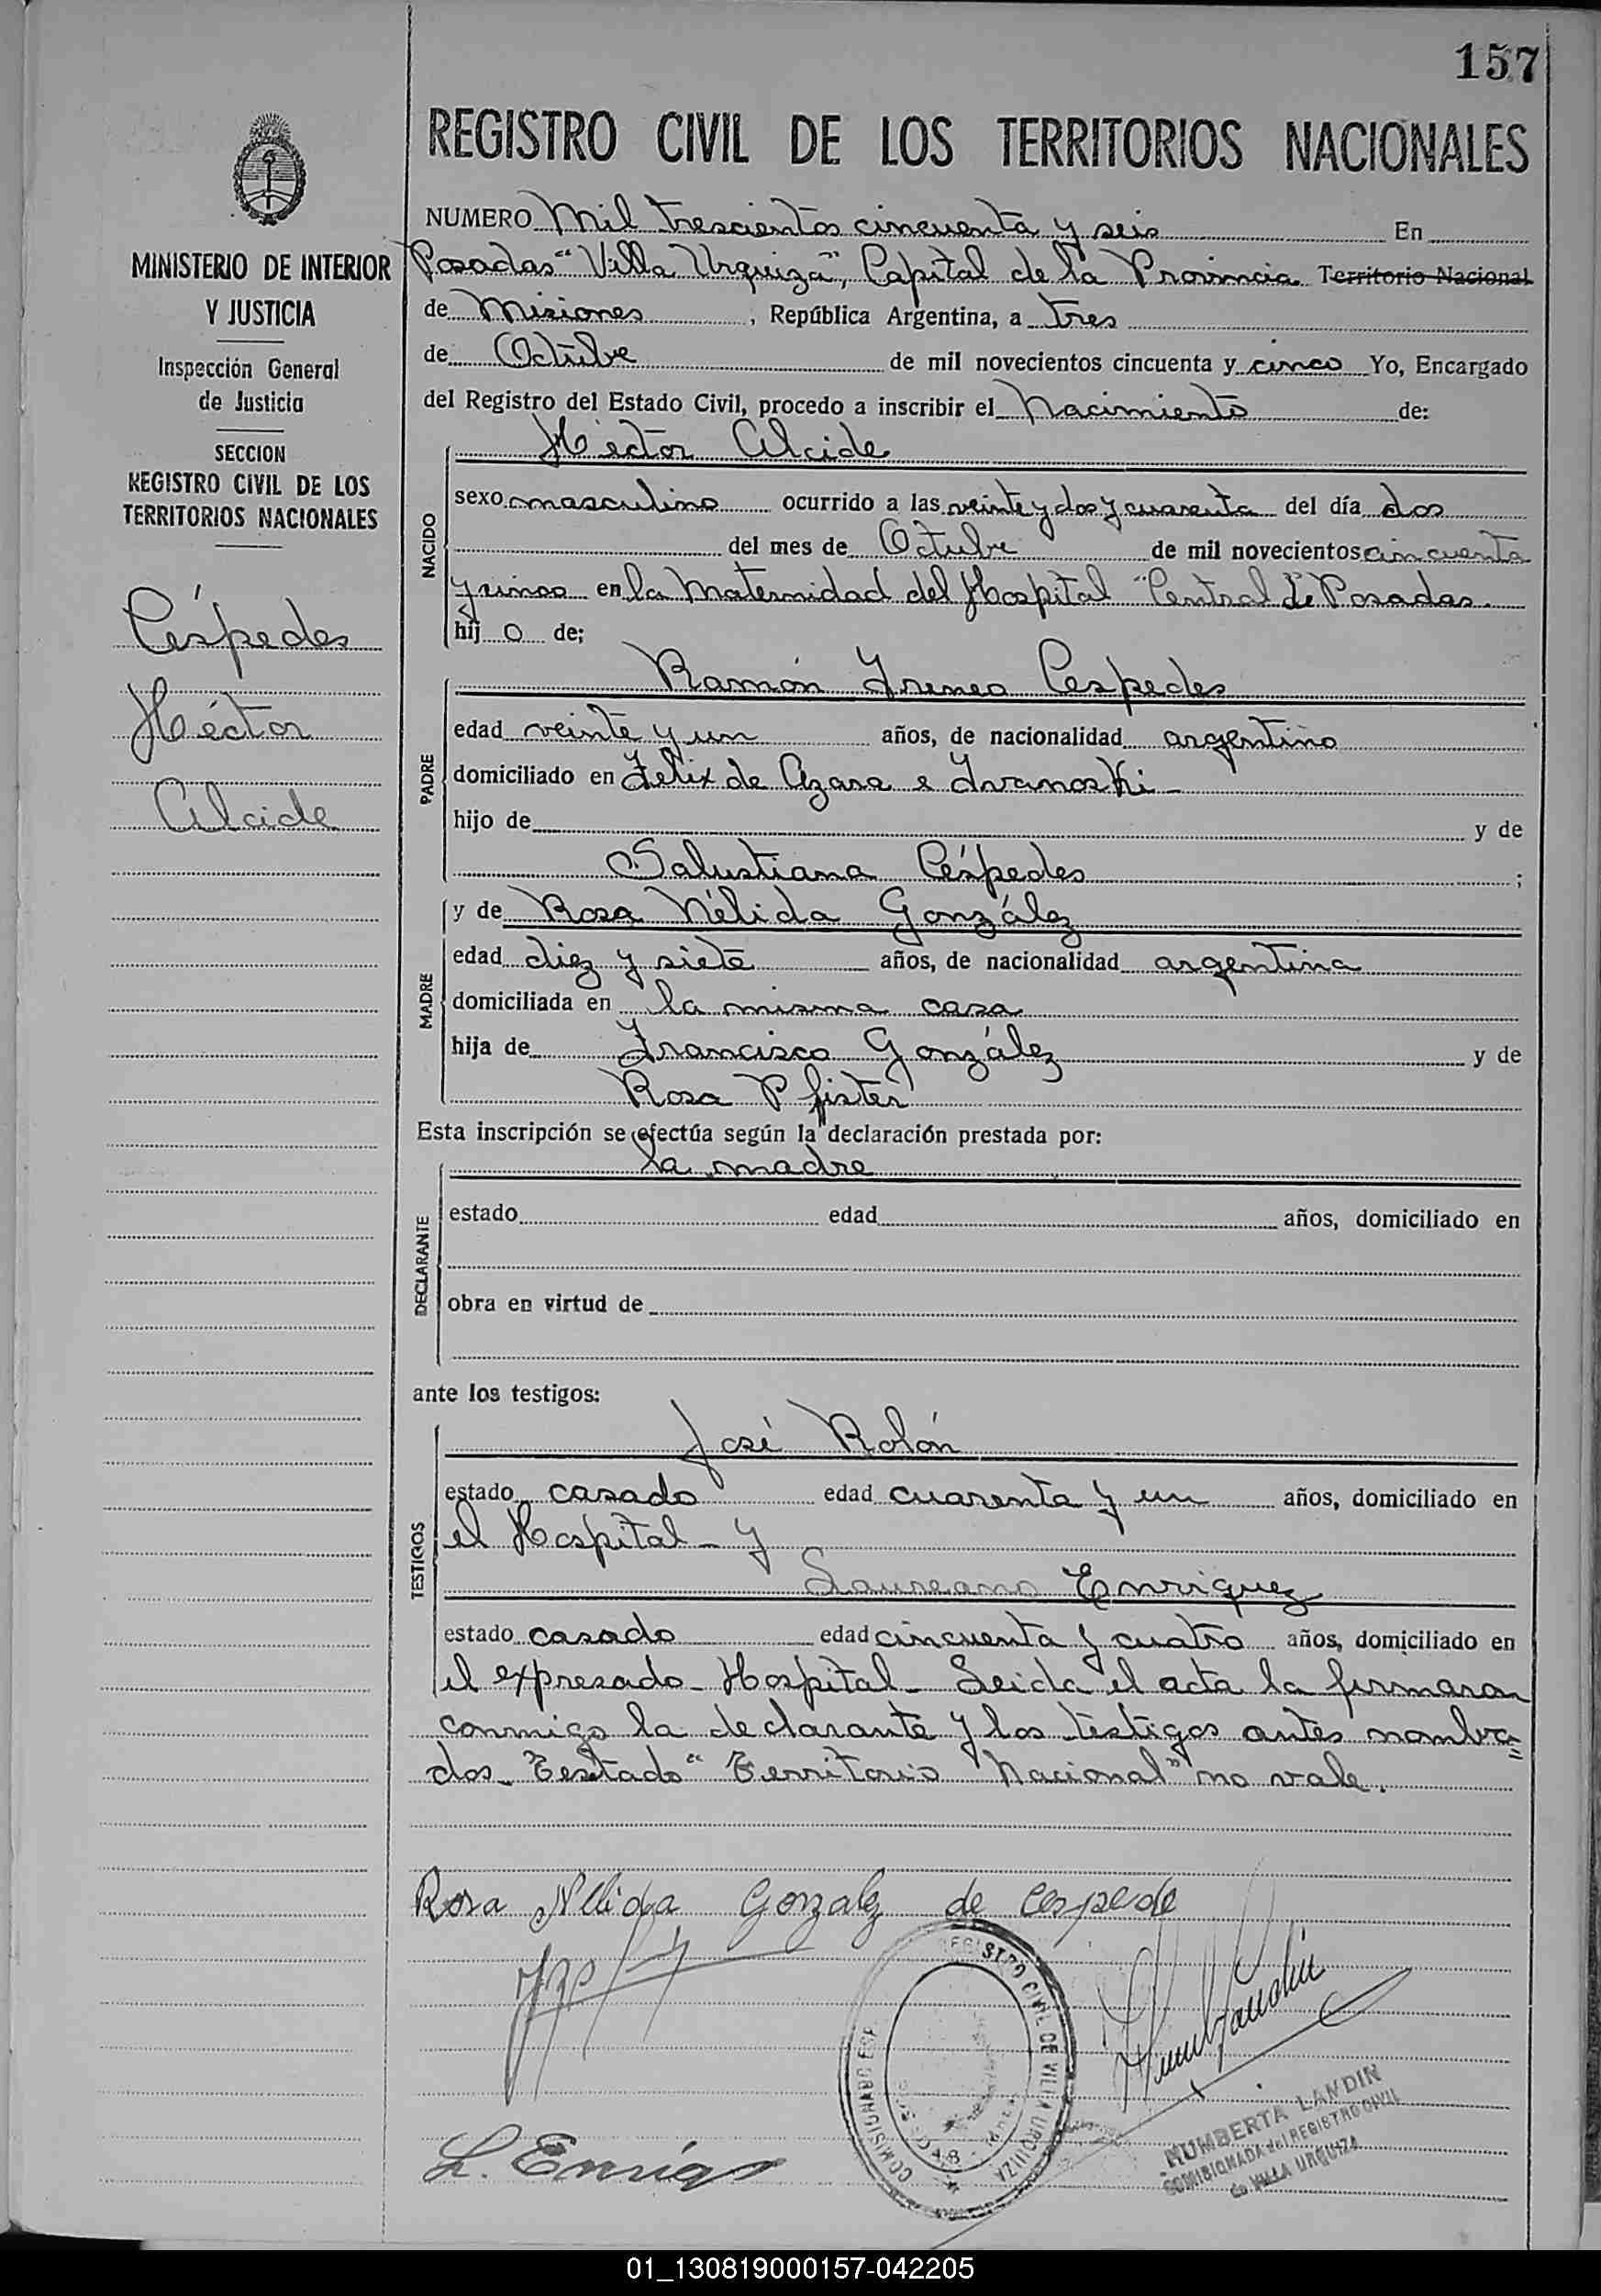 157
REGISTRO CIVIL DE LOS TERRITORIOS NACIONALES
MINISTERIO DE INTERIOR
Y JUSTICIA
Inspección General
de Justicia
SECCION
REGISTRO CIVIL DE LOS
TERRITORIOS NACIONALES
Céspedes
Héctor
Alcide
NUMERO Mil trescientos cincuenta y seis En
Posadas "Villa Urquiza", Capital de la Provincia Territorio Nacional
de Misiones, República Argentina, a tres
de Octubre de mil novecientos cincuenta y cinco Yo, Encargado
del Registro del Estado Civil, procedo a inscribir el Nacimiento de:
NACIDO
Héctor Alcide
sexo masculino ocurrido a las veinte y dos y cuarenta del día dos
del mes de Octubre de mil novecientos cincuenta
y cinco en la Maternidad del Hospital "Central de Posadas
hij o de;
PADRE
Ramón Ireneo Cespedes
edad veinte y un años, de nacionalidad argentino
domiciliado en Felix de Azara e Ivanoski -
hijo de y de
Salustiana Céspedes ;
MADRE
y de Rosa Nélida González
edad diez y siete años, de nacionalidad argentina
domiciliada en la misma casa
hija de Francisco González y de
Rosa Pfister
Esta inscripción se efectúa según la declaración prestada por:
DECLARANTE
la madre
estado edad años, domiciliado en
obra en virtud de
ante los testigos:
TESTIGOS
José Rolón
estado casado edad cuarenta y un años, domiciliado en
el Hospital - y
Laureano Enriquez
estado casado edad cincuenta y cuatro años, domiciliado en
el expresado Hospital - Leida el acta la firmaron
conmigo la declarante y los testigos antes nombra=
dos - Testado "Territorio Nacional" no vale.
Rosa Nelida Gonzalez de Cespede
L. Enriqz
REGISTRO CIVIL DE VILLA URQUIZA
HUMBERTA LANDIN
COMISIONADA del REGISTRO CIVIL
de VILLA URQUIZA
01_130819000157-042205